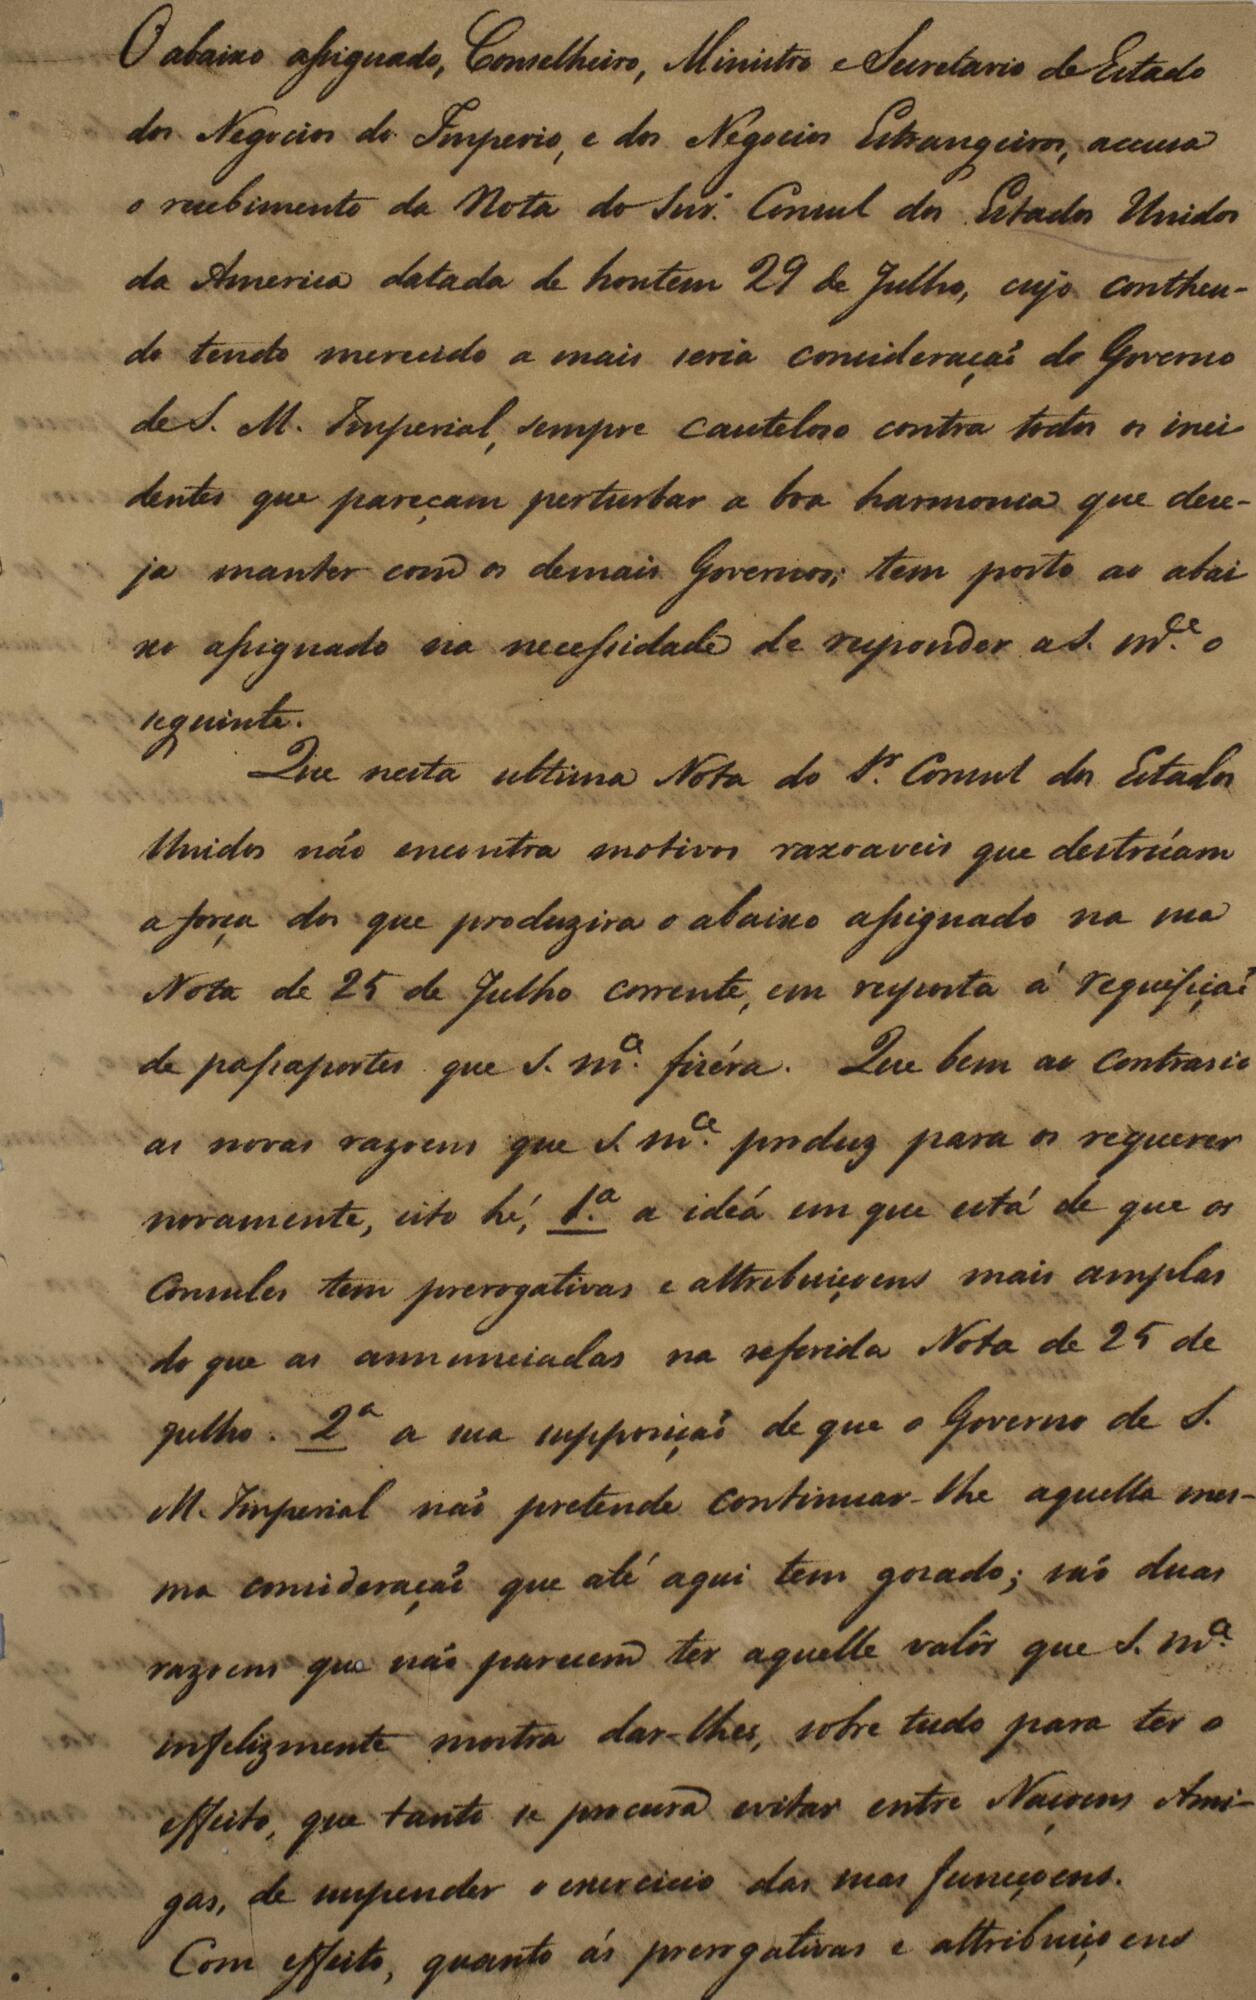 O abaixo assignado, Conselheiro, Ministro e Secretario de Estado
dos Negocios do Imperio, e dos Negocios Estrangeiros, accusa
o recebimento da Nota do Snr. Consul dos Estados Unidos
da America datada de hontem 29 de Julho, cujo contheu-
do tendo merecido a mais seria consideraçaõ do Governo
de S. M. Imperial, sempre cauteloso contra todos os inci
dentes que pareçam perturbar a boa harmonia que dese-
ja manter com os demais Governos; tem posto ao abai
xo assignado na necessidade de responder a S. m.ce o
seguinte.
Que nesta ultima Nota do Sr. Consul dos Estados
Unidos não encontra motivos razoaveis que destrúam
a força dos que produzira o abaixo assignado na sua
Nota de 25 de Julho corrente, em resposta á requisiçaõ
de passaportes que S. m.ce fizéra. Que bem ao contrario
as novas razoens que S. m.ce produz para os requerer
novamente, isto hé, 1.ª a idéa em que está de que os
Consules tem prerogativas e attribuiçoens mais amplas
do que as annunciadas na referida Nota de 25 de
Julho. 2ª a sua supposiçaõ de que o Governo de S.
M. Imperial naõ pretende continuar-lhe aquella mes-
ma consideraçaõ que até aqui tem gosado; saõ duas
razoens que não parecem ter aquelle valôr que S. m.ce
infelizmente mostra dar-lhes, sobre tudo para ter o
effeito, que tanto se procura evitar entre Naçoens Ami-
gas, de suspender o exercicio das suas funcçoens.
Com effeito, quanto ás prerogativas e attribuiçoens